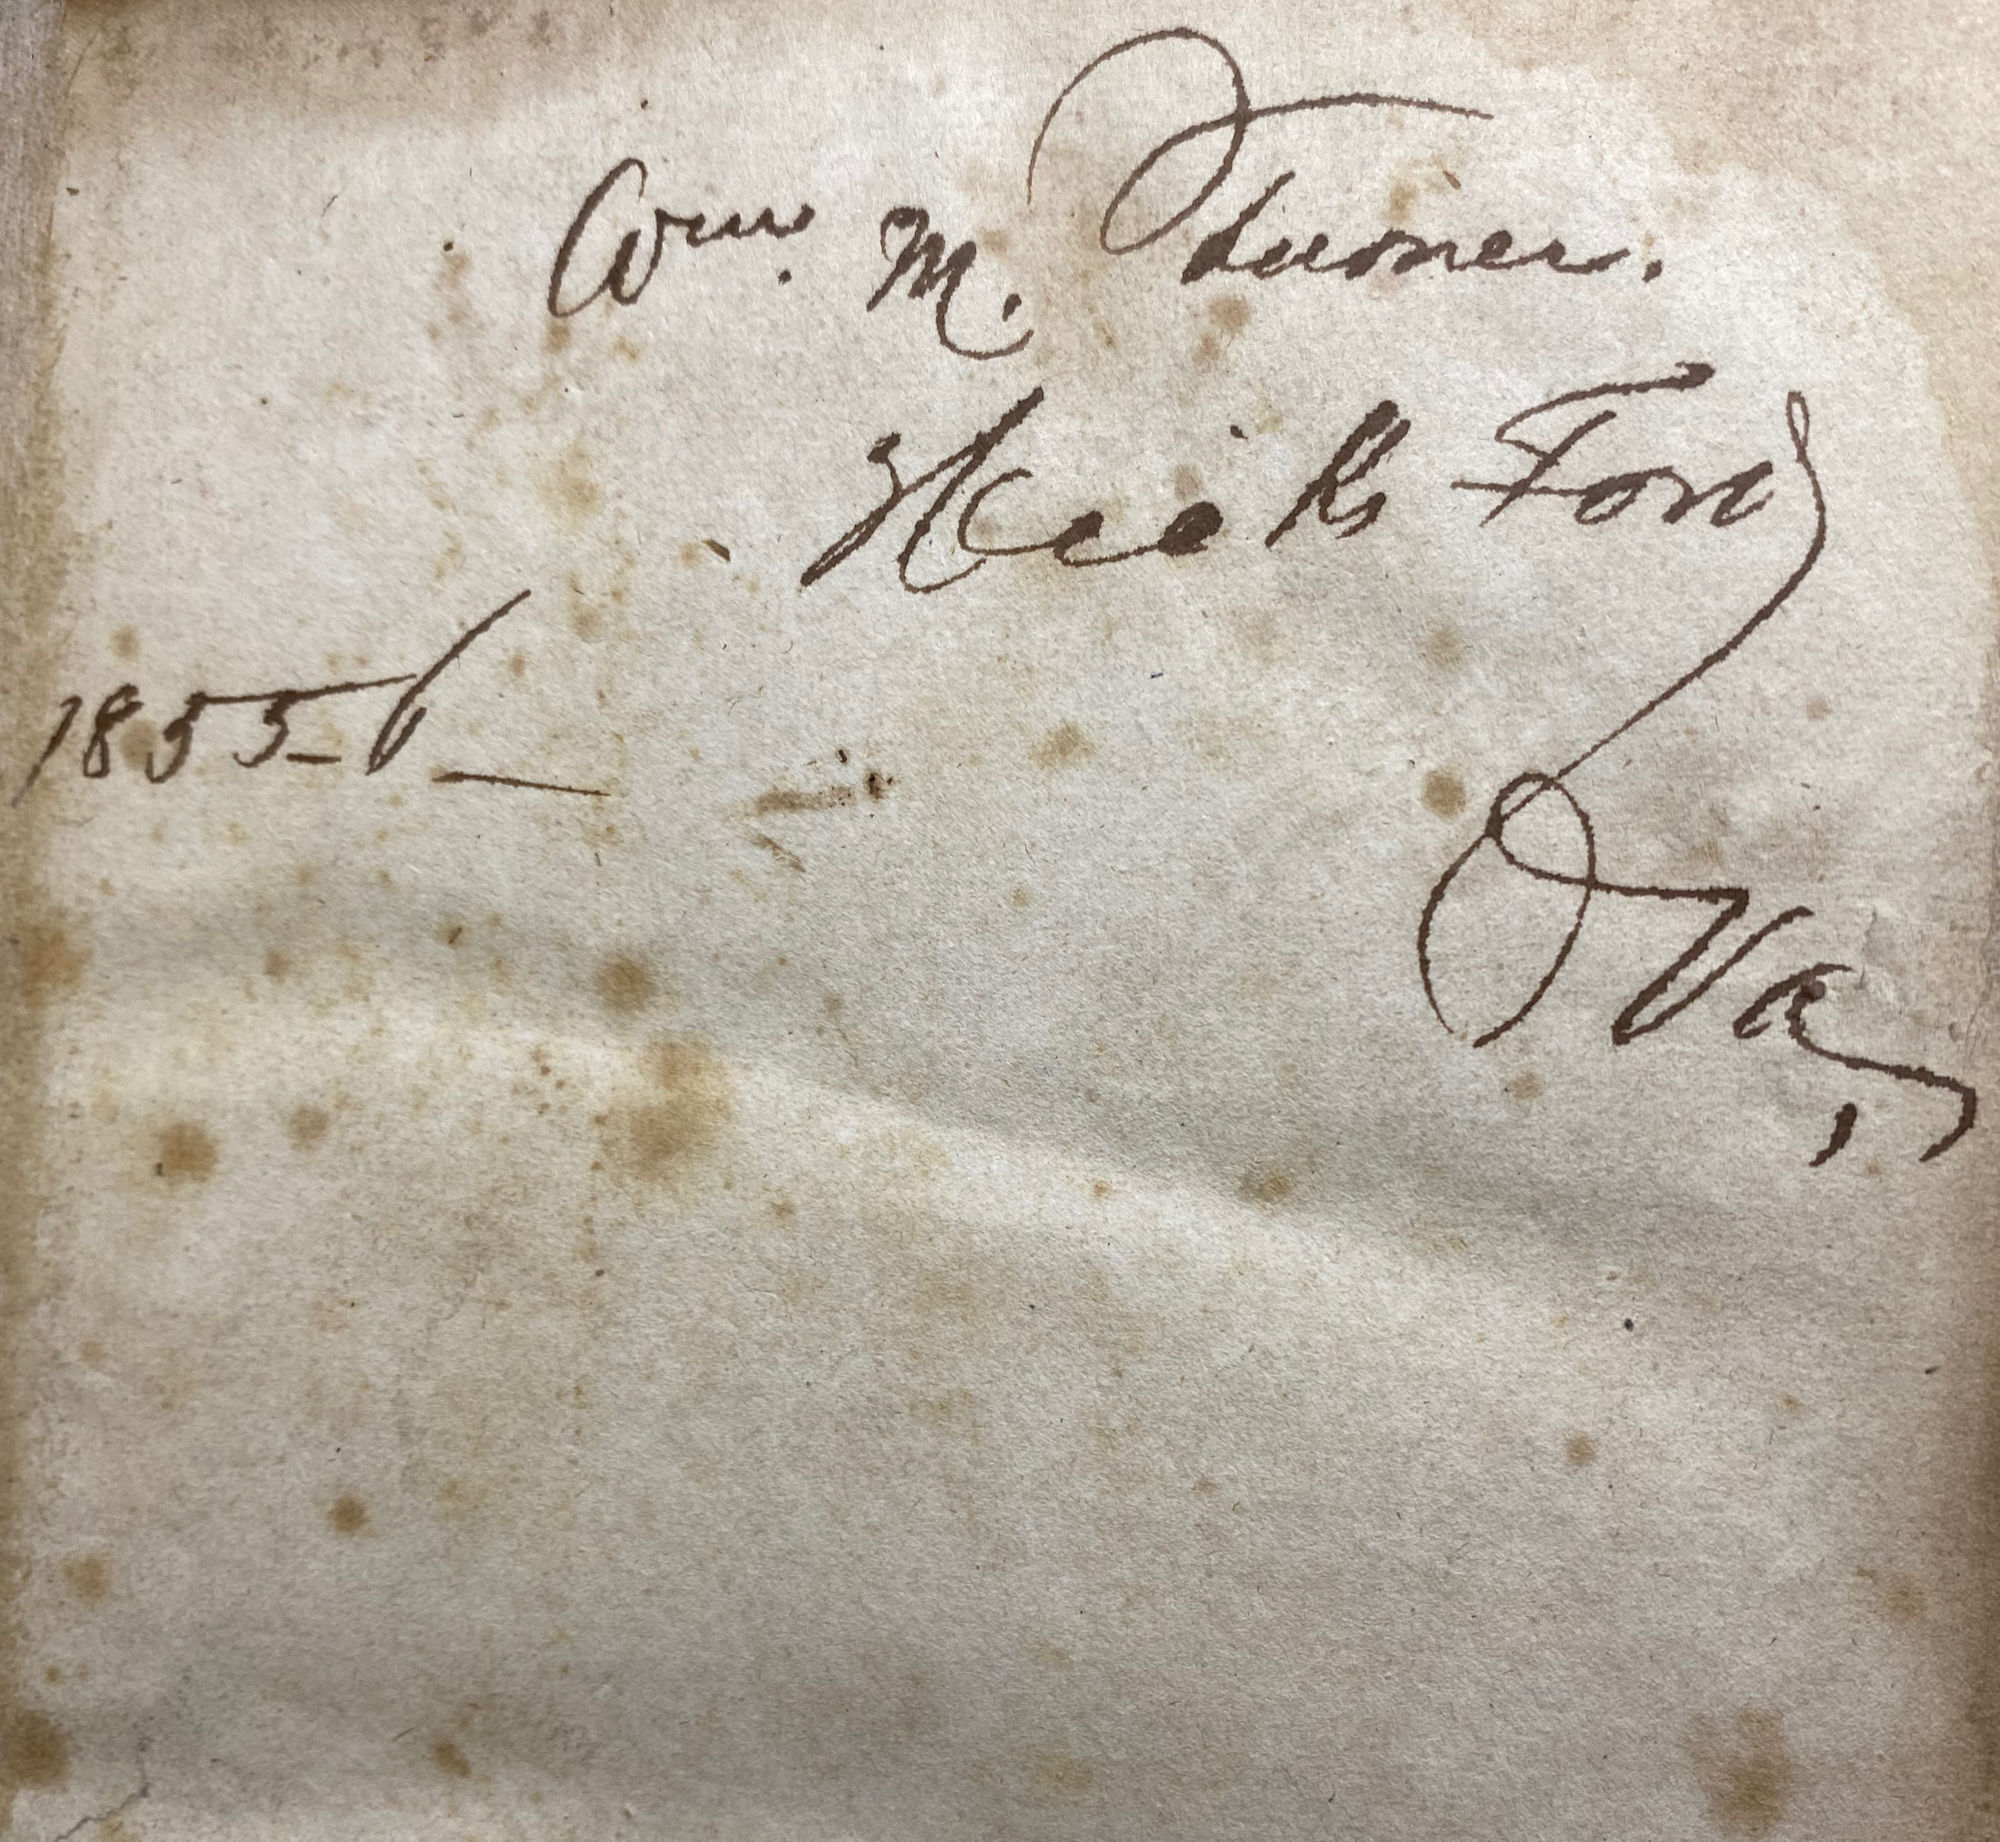 Wm. M. Turner.
Hicks Ford
1855-6
Va,